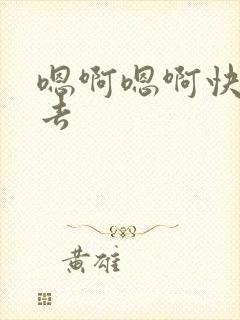 嗯啊嗯啊快
去
黄雄